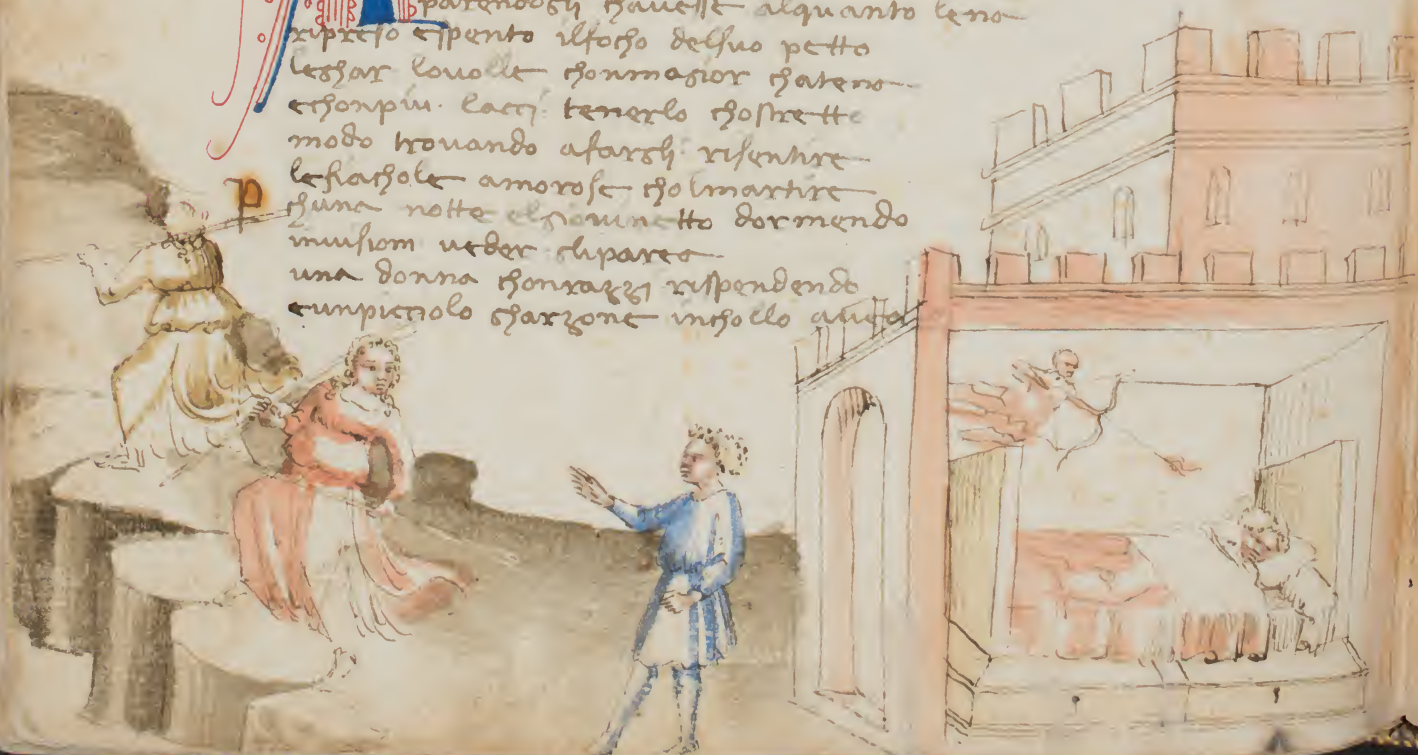 parendogli chavesse alquanto lena
ripreso espento ilfocho delsuo petto
leghar lovolle chonmagior chatena
echonpiu lacci tenerlo chostretto
modo trovando afargli risentire
lefiachole amorose cholmartire
P chuna notte elgiovinetto dormendo
invisiom veder glipareа
una donna chonrazzi rispendendo
eunpicciolo gharzone inchollo avea